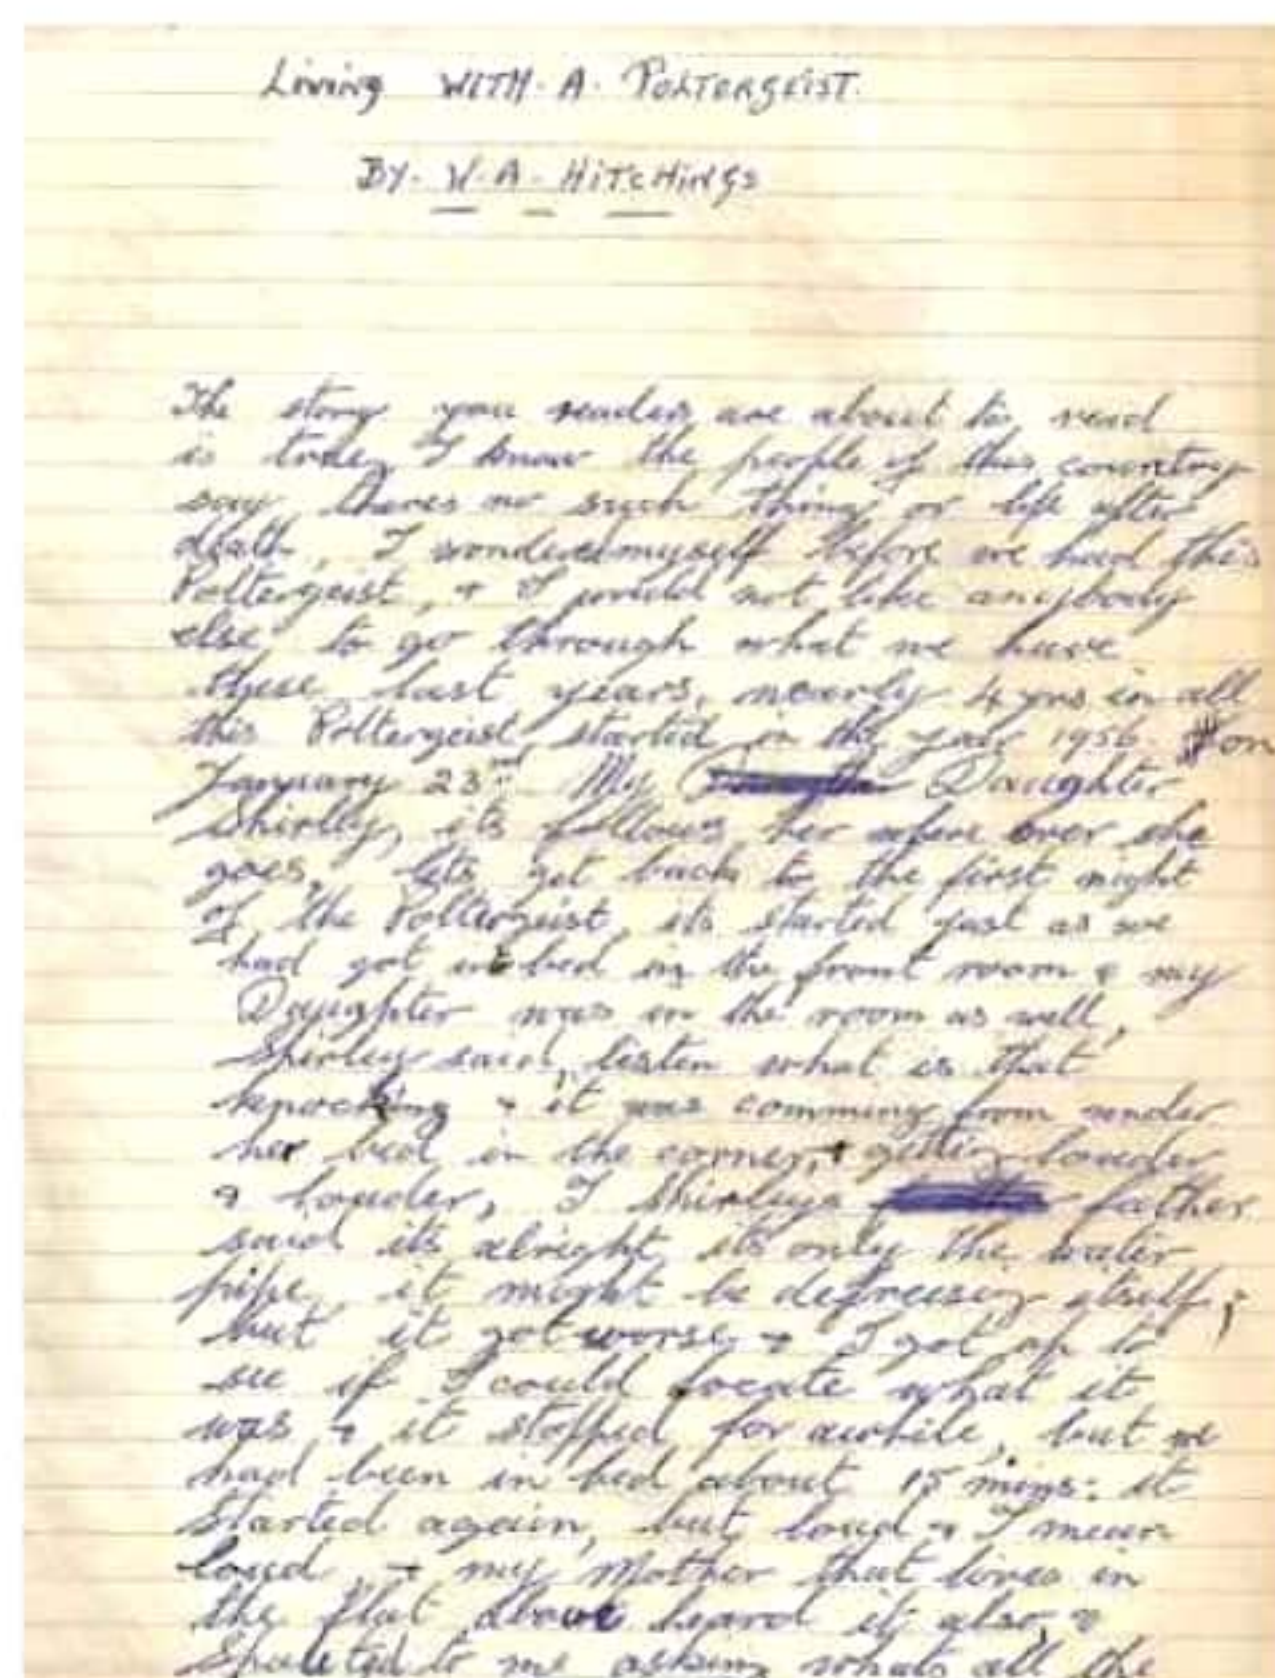 Living WITH. A. POLTERGEIST.
BY. W. A. HITCHINGS
The story you readers are about to read
is true, I know the people of this country
say theres no such thing or life after
death, I wondered myself before we had this
Poltergeist, + I would not like anybody
else to go through what we have
these last years, nearly 4 yrs in all
this Poltergeist, started in the year 1956. on
January 23rd My Daughter
Shirley, its follows her where ever she
goes, lets get back to the first night
of the Poltergeist its started just as we
had got into bed in the front room & my
Daughter was in the room as well,
Shirley said, listen what is that
knocking + it was comming from under
her bed in the corner, + getting louder
& louder, I Shirleys father
said its alright its only the water
pipe, it might be defreesing itself;
but it got worse + I got up to
see if I could locate what it
was + it stopped for awhile, but we
had been in bed about 15 mins: it
started again, but loud + I mean
loud, + my Mother that lives in
the flat above heard it also, &
Shouted to me asking whats all the